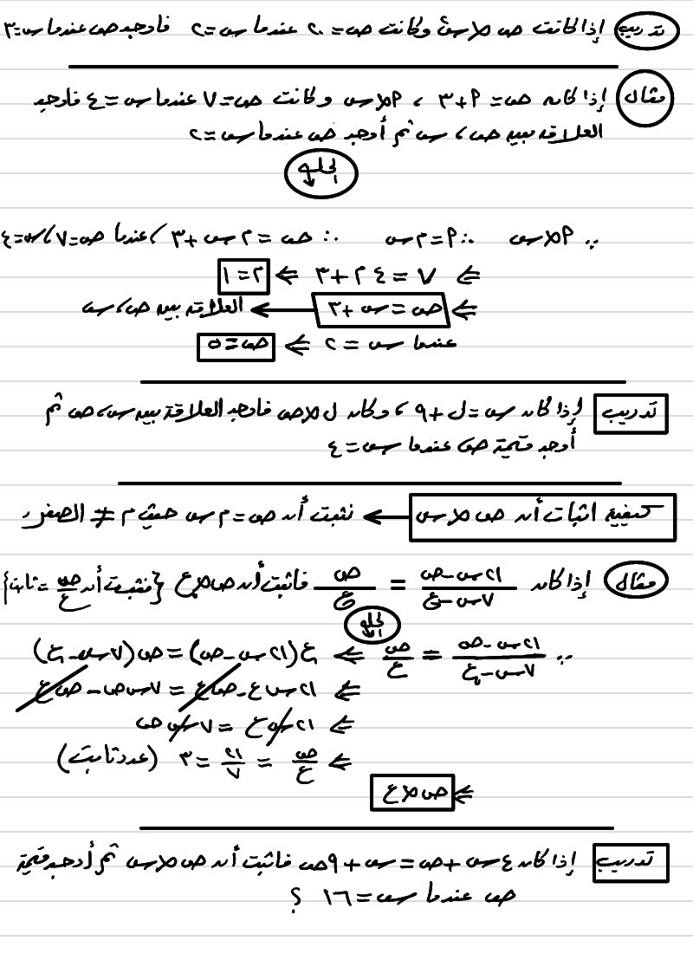 تدريب إذا كانت ص ∝ س وكانت ص = ٢٠ عندما س = ٢ فأوجد ص عندما س = ٣
مثال إذا كانت ص = ٣ + م ، م ∝ س وكانت ص = ٧ عندما س = ٤ فأوجد
العلاقة بين ص ، س ثم أوجد ص عندما س = ٢
الحل
∵ م ∝ س ∴ م = م س ∴ ص = م س + ٣ ، عندما ص = ٧ ، س = ٤
⇐ ٧ = ٤ م + ٣ ⇐ م = ١
⇐ ص = س + ٣ ← العلاقة بين ص ، س
عندما س = ٢ ⇐ ص = ٥
تدريب إذا كان س = ل + ٩ ، وكان ل ∝ ص فأوجد العلاقة بين س ، ص ثم
أوجد قيمة ص عندما س = ٤
كيفية اثبات أن ص ∝ س ← نثبت أن ص = م س حيث م ≠ الصفر
مثال إذا كان (٢١س - ص)/(٧س - ع) = ص/ع فاثبت أن ص ∝ ع {نثبت أن ص/ع = ثابت}
الحل
∵ (٢١س - ص)/(٧س - ع) = ص/ع ⇐ ع(٢١س - ص) = ص(٧س - ع)
⇐ ٢١س ع - ص ع = ٧س ص - ص ع
⇐ ٢١س ع = ٧س ص
⇐ ص/ع = ٢١/٧ = ٣ (عدد ثابت)
⇐ ص ∝ ع
تدريب إذا كان ٤س + ص = س + ٩ص فاثبت أن ص ∝ س ثم أوجد قيمة
ص عندما س = ١٦ ؟